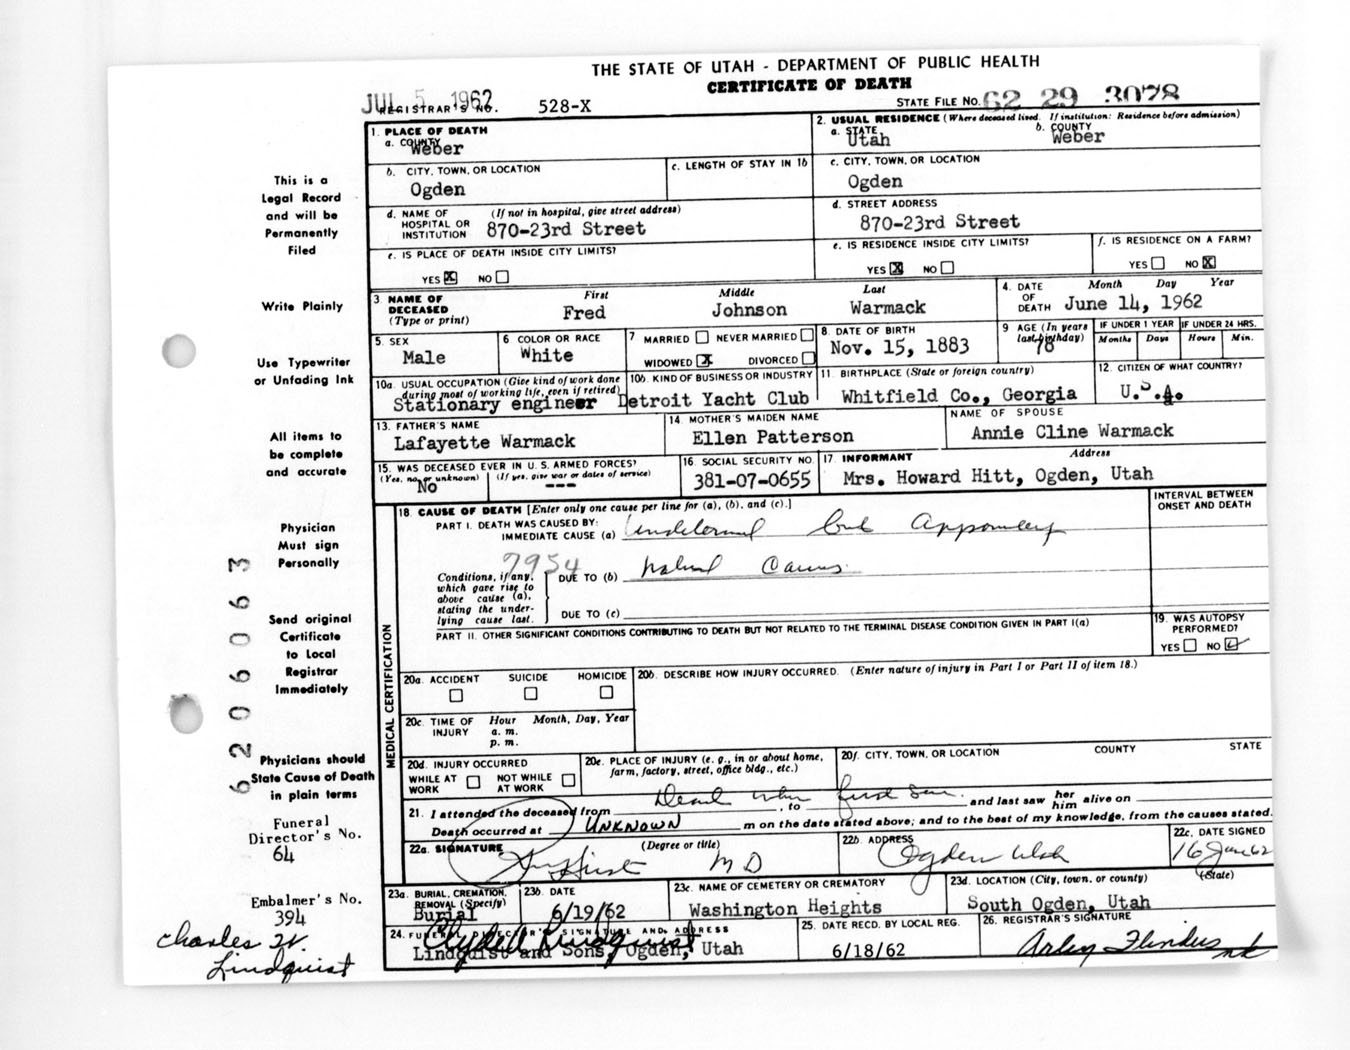 THE STATE OF UTAH - DEPARTMENT OF PUBLIC HEALTH
CERTIFICATE OF DEATH
JUL 5 1962
REGISTRAR'S NO. 528-X
STATE FILE NO. 62 29 3078
This is a
Legal Record
and will be
Permanently
Filed
Write Plainly
Use Typewriter
or Unfading Ink
All items to
be complete
and accurate
Physician
Must sign
Personally
Send original
Certificate
to Local
Registrar
Immediately
Physicians should
State Cause of Death
in plain terms
Funeral
Director's No.
64
Embalmer's No.
394
Charles W.
Lindquist
62206063
1. PLACE OF DEATH
a. COUNTY
Weber
2. USUAL RESIDENCE (Where deceased lived. If institution: Residence before admission)
a. STATE
Utah
b. COUNTY
Weber
b. CITY, TOWN, OR LOCATION
Ogden
c. LENGTH OF STAY IN 1b
c. CITY, TOWN, OR LOCATION
Ogden
d. NAME OF HOSPITAL OR INSTITUTION (If not in hospital, give street address)
870-23rd Street
d. STREET ADDRESS
870-23rd Street
e. IS PLACE OF DEATH INSIDE CITY LIMITS?
YES X NO
e. IS RESIDENCE INSIDE CITY LIMITS?
YES X NO
f. IS RESIDENCE ON A FARM?
YES NO X
3 NAME OF DECEASED (Type or print)
First Middle Last
Fred Johnson Warmack
4. DATE OF DEATH Month Day Year
June 14, 1962
5. SEX
Male
6 COLOR OR RACE
White
7 MARRIED NEVER MARRIED
WIDOWED X DIVORCED
8 DATE OF BIRTH
Nov. 15, 1883
9 AGE (In years last birthday)
78
IF UNDER 1 YEAR
Months Days
IF UNDER 24 HRS.
Hours Min.
10a. USUAL OCCUPATION (Give kind of work done during most of working life, even if retired)
Stationary engineer
10b. KIND OF BUSINESS OR INDUSTRY
Detroit Yacht Club
11. BIRTHPLACE (State or foreign country)
Whitfield Co., Georgia
12. CITIZEN OF WHAT COUNTRY?
U.S.A.
13. FATHER'S NAME
Lafayette Warmack
14. MOTHER'S MAIDEN NAME
Ellen Patterson
NAME OF SPOUSE
Annie Cline Warmack
15. WAS DECEASED EVER IN U.S. ARMED FORCES?
(Yes, no, or unknown) (If yes, give war or dates of service)
No ---
16. SOCIAL SECURITY NO.
381-07-0655
17. INFORMANT Address
Mrs. Howard Hitt, Ogden, Utah
MEDICAL CERTIFICATION
18. CAUSE OF DEATH [Enter only one cause per line for (a), (b), and (c).]
INTERVAL BETWEEN ONSET AND DEATH
PART I. DEATH WAS CAUSED BY:
IMMEDIATE CAUSE (a)
7954
Conditions, if any, which gave rise to above cause (a), stating the underlying cause last.
DUE TO (b) Natural Causes
DUE TO (c)
PART II. OTHER SIGNIFICANT CONDITIONS CONTRIBUTING TO DEATH BUT NOT RELATED TO THE TERMINAL DISEASE CONDITION GIVEN IN PART I(a)
19. WAS AUTOPSY PERFORMED?
YES NO
20a. ACCIDENT SUICIDE HOMICIDE
20b. DESCRIBE HOW INJURY OCCURRED. (Enter nature of injury in Part I or Part II of item 18.)
20c. TIME OF INJURY Hour Month, Day, Year
a. m.
p. m.
20d. INJURY OCCURRED
WHILE AT WORK NOT WHILE AT WORK
20e. PLACE OF INJURY (e. g., in or about home, farm, factory, street, office bldg., etc.)
20f. CITY, TOWN, OR LOCATION COUNTY STATE
21. I attended the deceased from Dead when, to first seen and last saw her him alive on
Death occurred at UNKNOWN m on the date stated above; and to the best of my knowledge, from the causes stated.
22a. SIGNATURE (Degree or title)
MD
22b. ADDRESS
Ogden Utah
22c. DATE SIGNED
16 June 62
23a. BURIAL, CREMATION, REMOVAL (Specify)
Burial
23b. DATE
6/19/62
23c. NAME OF CEMETERY OR CREMATORY
Washington Heights
23d. LOCATION (City, town, or county) (State)
South Ogden, Utah
24. FUNERAL DIRECTOR'S SIGNATURE AND ADDRESS
Clyde Lindquist
Lindquist and Sons, Ogden, Utah
25. DATE RECD. BY LOCAL REG.
6/18/62
26. REGISTRAR'S SIGNATURE